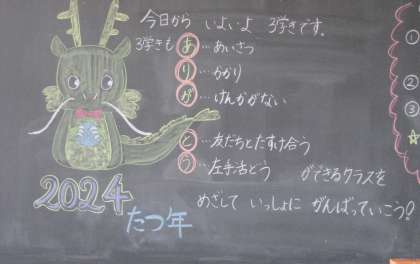 今日から いよいよ 3学きです。
3学きも
あ…あいさつ
り…かかり
が…けんかがない
と…友だちとたすけ合う
う…左手活どう ができるクラスを
めざして いっしょに がんばっていこう?
2024
たつ年
①
②
③